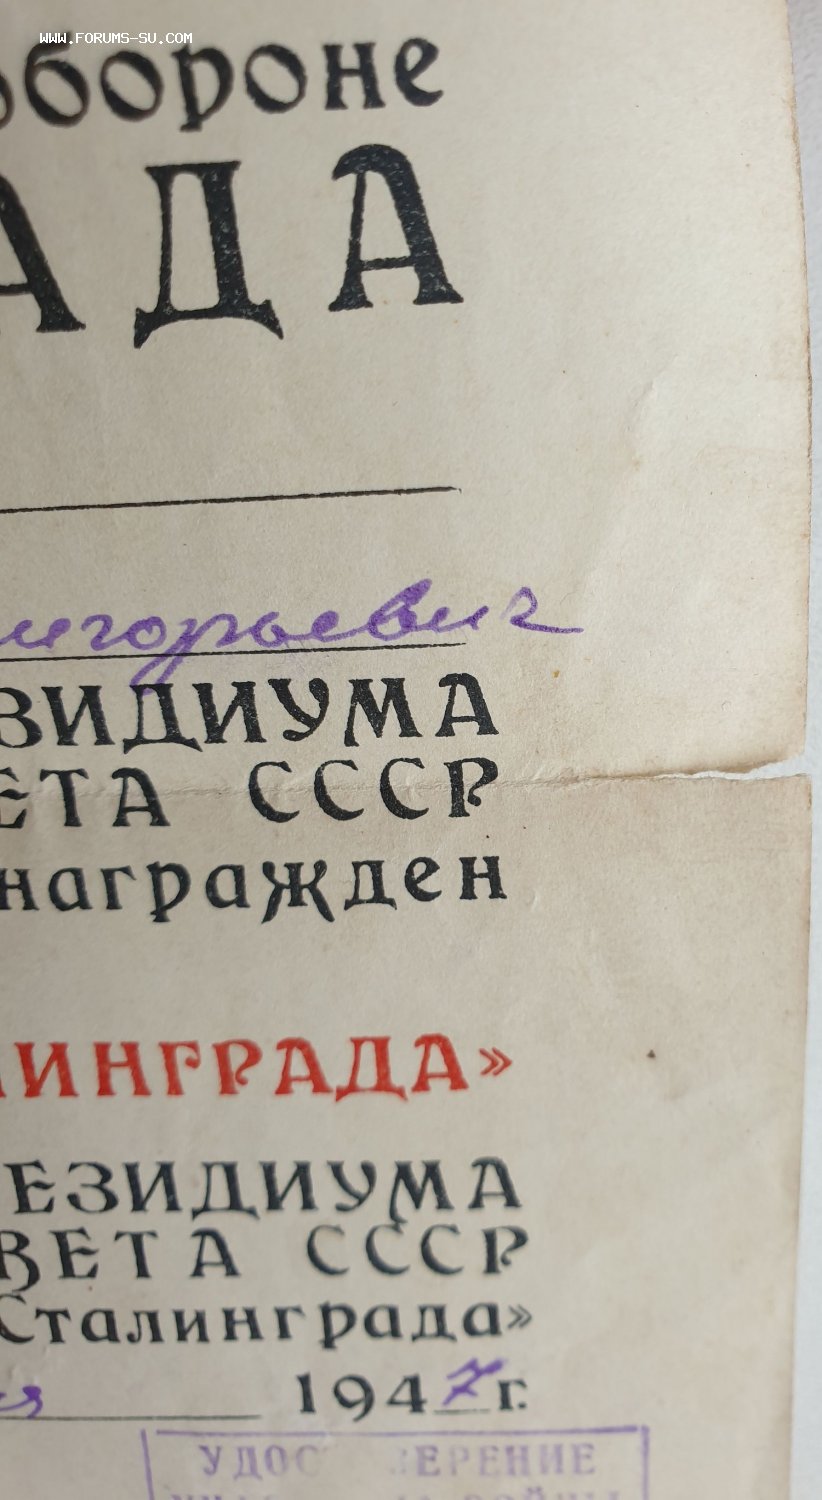 WWW.FORUMS-SU.COM
обороне
АДА
игорьевич
ЗИДИУМА
ЕТА СССР
награжден
ИНГРАДА»
ЕЗИДИУМА
ВЕТА СССР
Сталинграда»
я 1947 г.
УДОС ЕРЕНИЕ